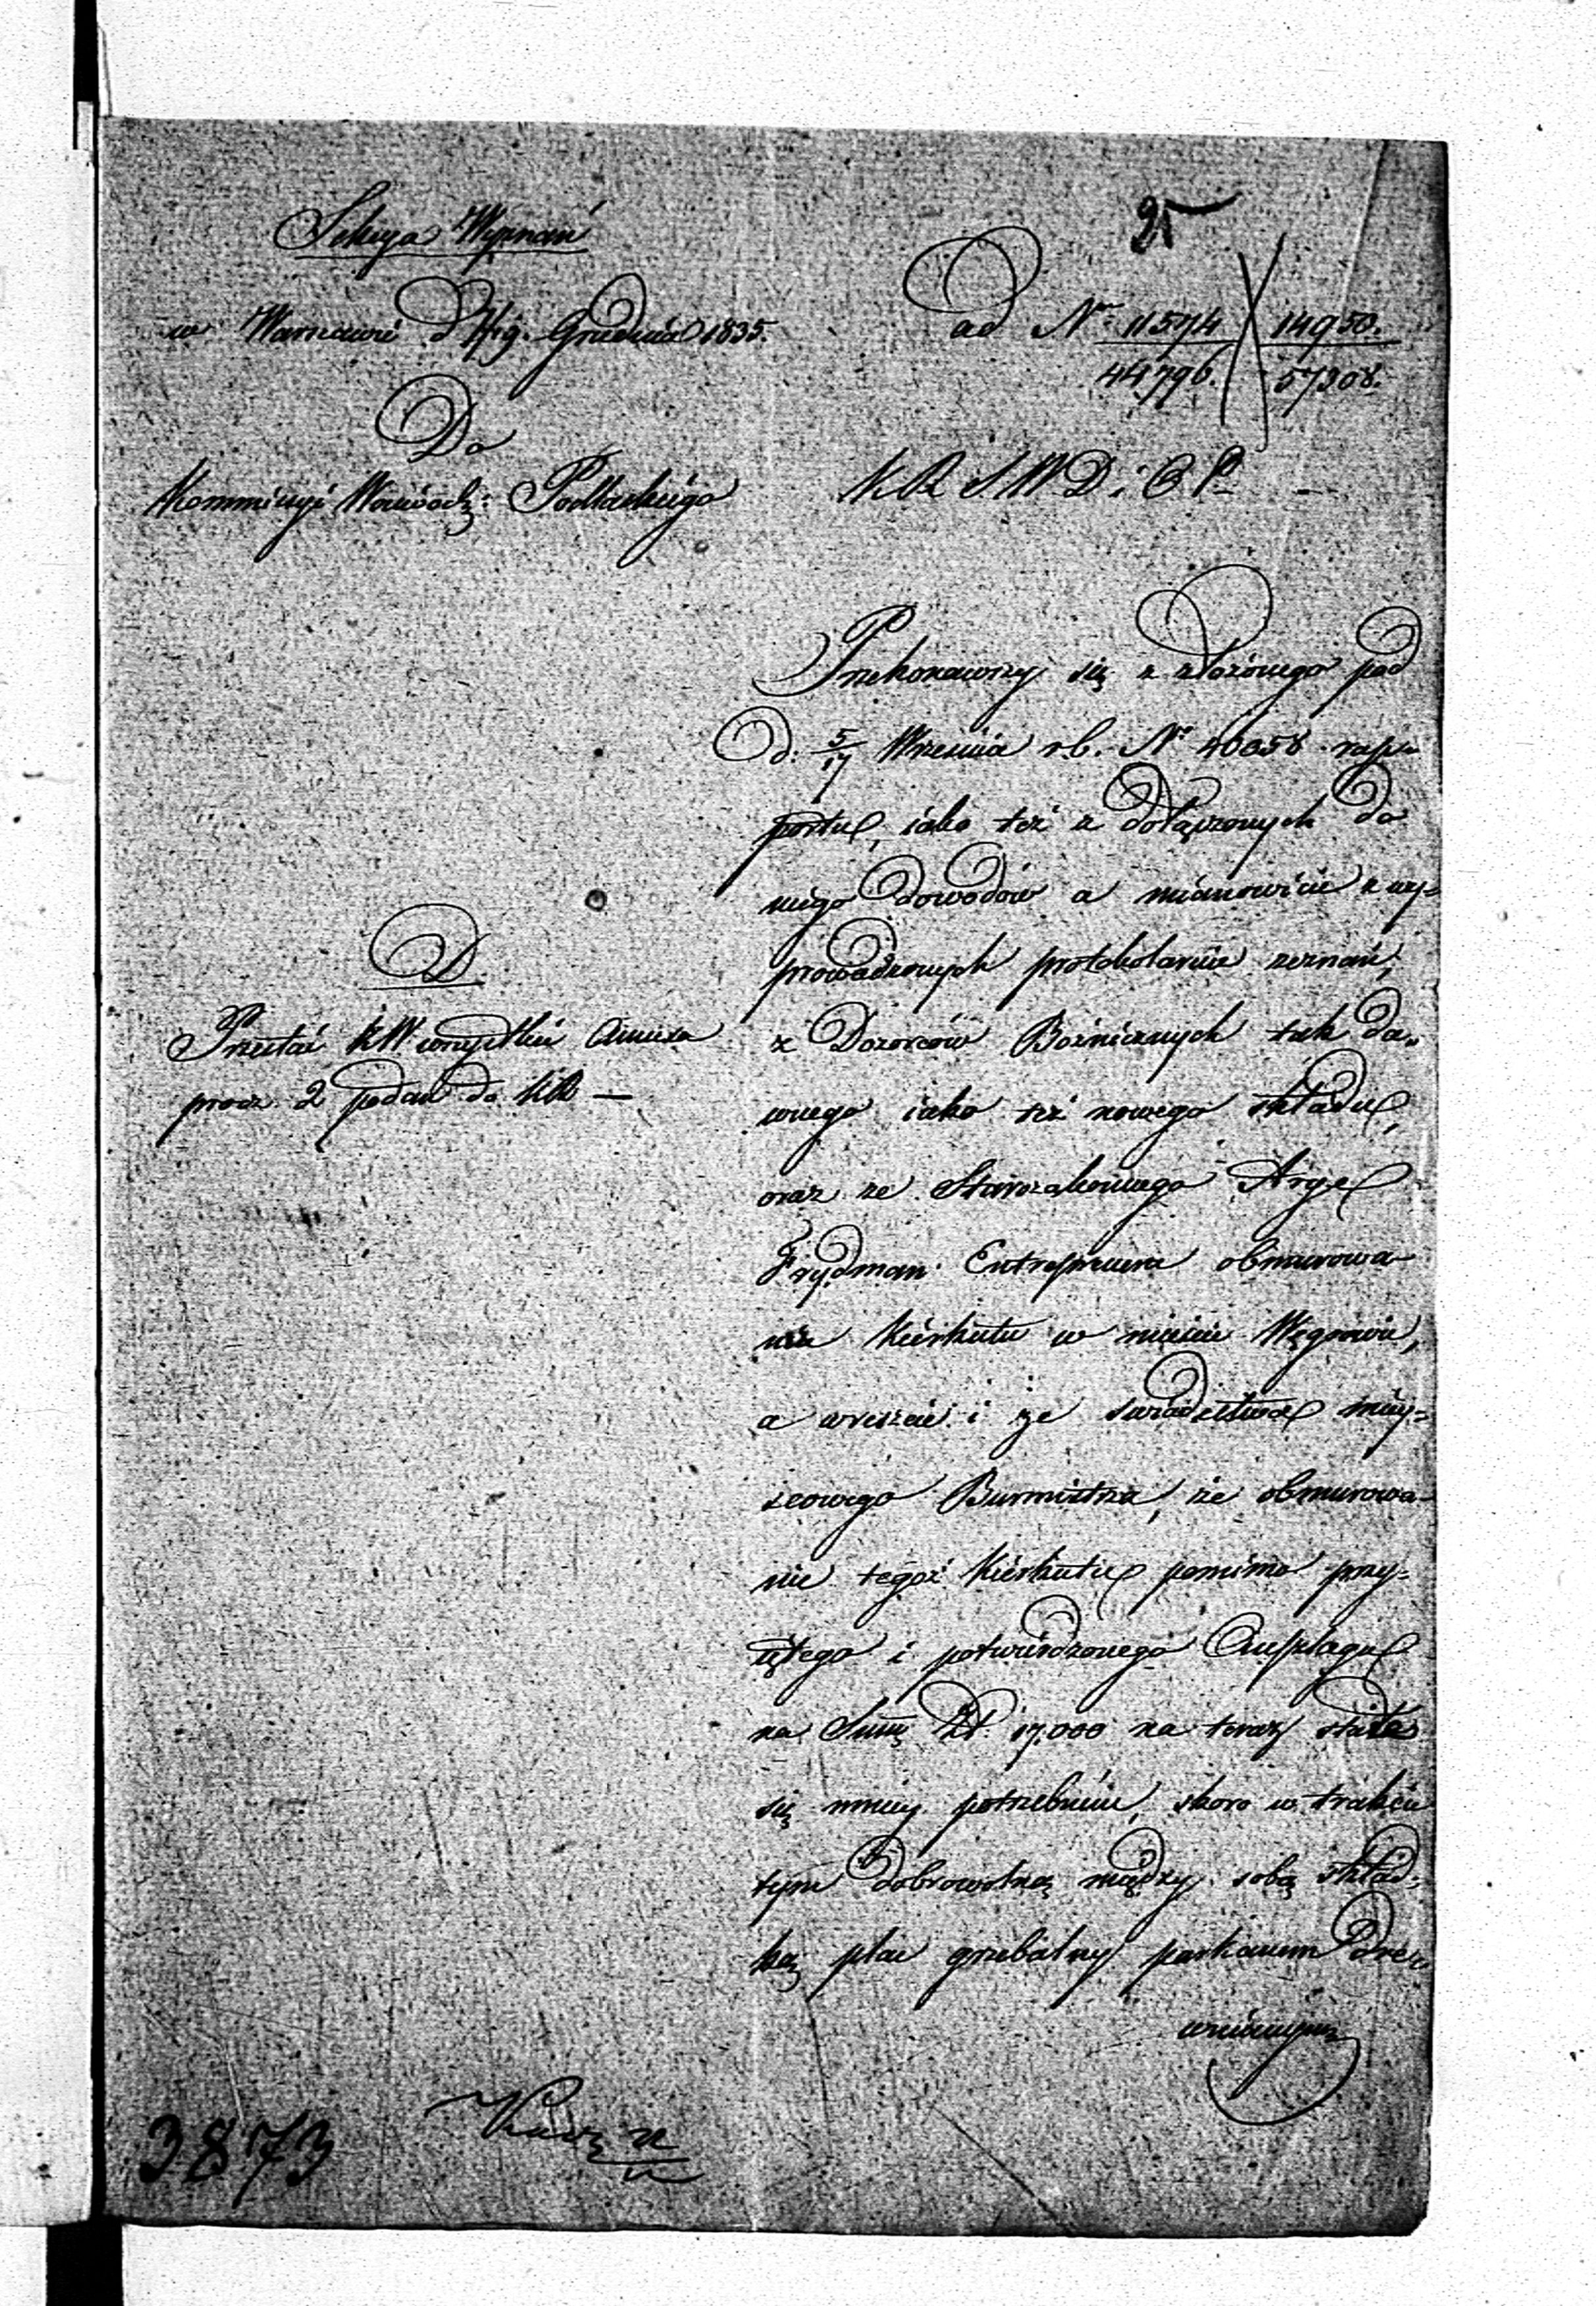 25
Sekcya Wyznań
w Warszawie d 7/19. Grudnia 1835.
ad Nr 11574 14950.
44796. 57208.
Do
Kommissyi Woiewódz: Podlaskiego
K R S W D i O P
Przekonawszy się z złożonego pod
d: 5/17 Września r.b. No 40658 rap-
portu, iako też z dołączonych do
niego dowodów a mianowicie z wy-
prowadzonych protokolarnie zeznań,
z Dozorców Bożniczych tak da-
wnego iako też nowego składu,
oraz ze Starozakonnego Aryel
Frydman Entreprenera obmurowa-
nia Kierkutu w mieście Węgrowie,
a wreszcie i ze świadectwa miey-
scowego Burmistrza, że obmurowa-
nie tegoż Kierkutu pomimo przy-
iętego i potwierdzonego Anszlagu
na Summę Złp. 17.000 na teraz staie
się mniey potrzebnem, skoro w trakcie
tym dobrowolną między sobą skład-
ką plac grzebalny parkanem dre-
wnianym
D.
Przesłać KW wszystkie Annexa
procz 2 podań do KR —
3873